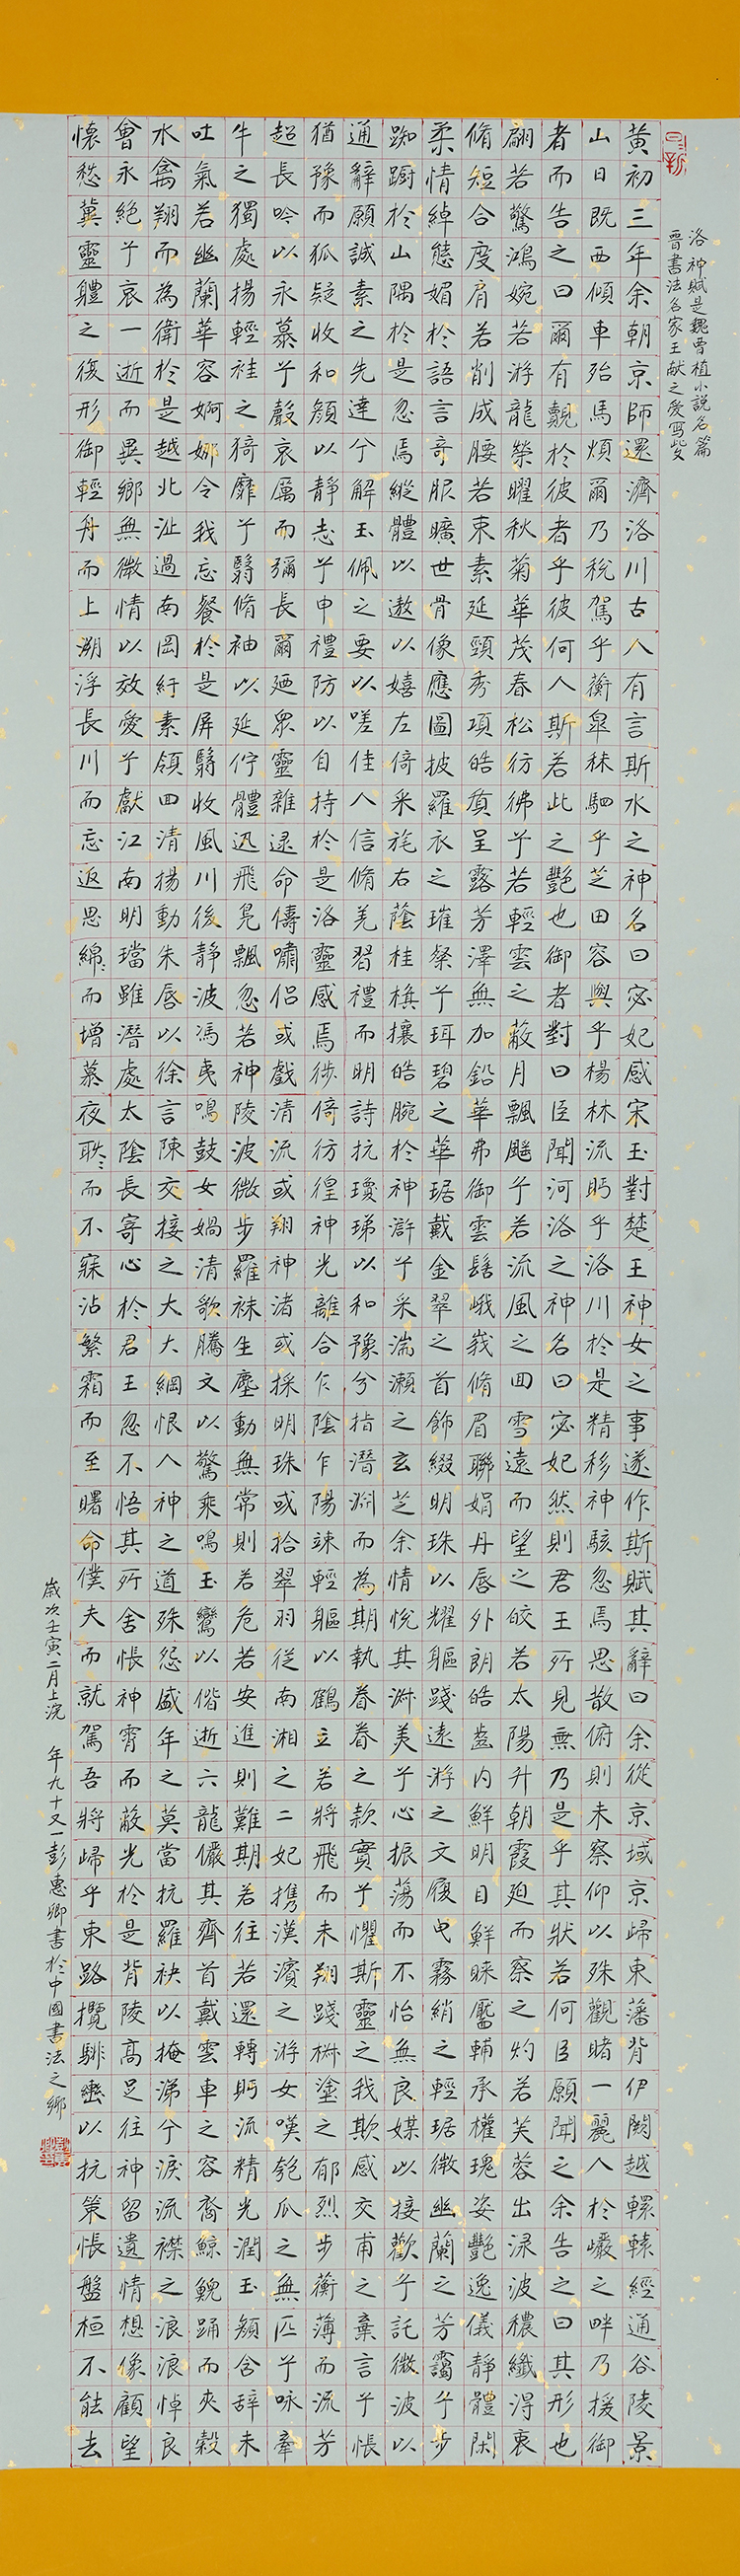 洛神賦是魏曹植小說名篇
晉書法名家王献之愛寫此文
黃初三年余朝京師還濟洛川古人有言斯水之神名曰宓妃感宋玉對楚王神女之事遂作斯賦其辭曰余從京域京歸東藩背伊闕越轘轅經通谷陵景
山日既西傾車殆馬煩爾乃稅駕乎蘅皐秣駟乎芝田容與乎楊林流眄乎洛川於是精移神駭忽焉思散俯則未察仰以殊觀睹一麗人於巖之畔乃援御
者而告之曰爾有覿於彼者乎彼何人斯若此之艷也御者對曰臣聞河洛之神名曰宓妃然則君王所見無乃是乎其狀若何臣願聞之余告之曰其形也
翩若驚鴻婉若游龍榮曜秋菊華茂春松彷彿兮若輕雲之蔽月飄飖兮若流風之回雪遠而望之皎若太陽升朝霞迫而察之灼若芙蓉出淥波穠纖淂衷
脩短合度肩若削成腰若束素延頸秀項皓質呈露芳澤無加鉛華弗御雲髻峨峩脩眉聯娟丹唇外朗皓齒內鮮明目鮮睐靨輔承權瑰姿艷逸儀靜體閑
柔情綽態媚於語言奇服曠世骨像應圖披羅衣之璀粲兮珥碧之華琚戴金翠之首飾綴明珠以耀軀踐遠游之文履曳霧綃之輕琚微幽蘭之芳靄兮步
踟蹰於山隅於是忽焉縱體以遨以嬉左倚采旄右蔭桂旗攘皓腕於神滸兮采湍瀨之玄芝余情悅其淑美兮心振蕩而不怡無良媒以接歡兮託微波以
通辭願誠素之先達兮解玉佩之要以嗟佳人信脩羌習禮而明詩抗瓊珶以和豫兮指潛淵而為期執眷眷之款實兮懼斯靈之我欺感交甫之棄言兮悵
猶豫而狐疑收和顏以靜志兮申禮防以自持於是洛靈感焉徙倚彷徨神光離合乍陰乍陽竦輕軀以鶴立若將飛而未翔踐椒塗之郁烈步蘅薄而流芳
超長吟以永慕兮聲哀厲而彌長爾廼眾靈雜逯命儔嘯侣或戲清流或翔神渚或採明珠或拾翠羽從南湘之二妃携漢濱之游女嘆匏瓜之無匹兮咏牽
牛之獨處揚輕袿之猗靡兮翳脩袖以延佇體迅飛鳧飄忽若神陵波微步羅袜生塵動無常則若危若安進則難期若往若還轉眄流精光潤玉顏含辭未
吐氣若幽蘭華容婀娜令我忘餐於是屏翳收風川後靜波馮夷鳴鼓女媧清歌騰文以驚乘鳴玉鸞以偕逝六龍儼其齊首戴雲車之容裔鯨鯢踊而夾轂
水禽翔而為衛於是越北沚過南岡紆素領回清揚動朱唇以徐言陳交接之大大綱恨人神之道殊怨盛年之莫當抗羅袂以掩涕兮淚流襟之浪浪悼良
會永絕兮哀一逝而異鄉無微情以效愛兮獻江南明璫雖潛處太陰長寄心於君王忽不悟其所舍悵神宵而蔽光於是背陵高足往神留遺情想像顧望
懷愁冀靈體之復形御輕舟而上溯浮長川而忘返思綿〻而增慕夜耿〻而不寐沾繁霜而至曙命僕夫而就駕吾將歸乎東路攬騑轡以抗策悵盤桓不能去
歲次壬寅二月上浣 年九十又一彭惠卿書於中國書法之鄉